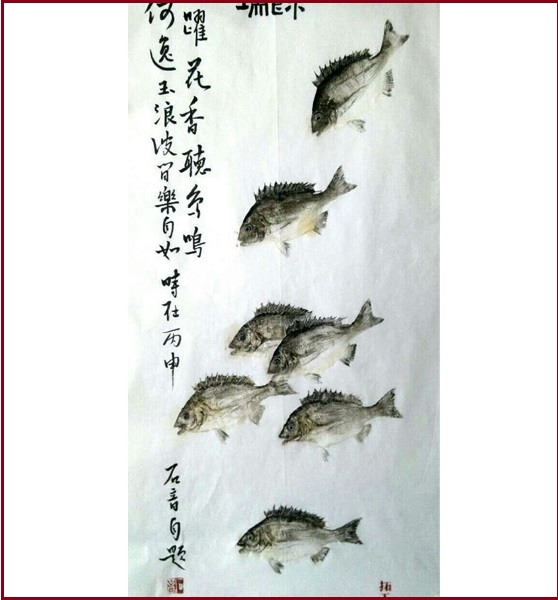 躍花香聽鳥鳴
逸玉浪波間樂自如 時在丙申
石音自題